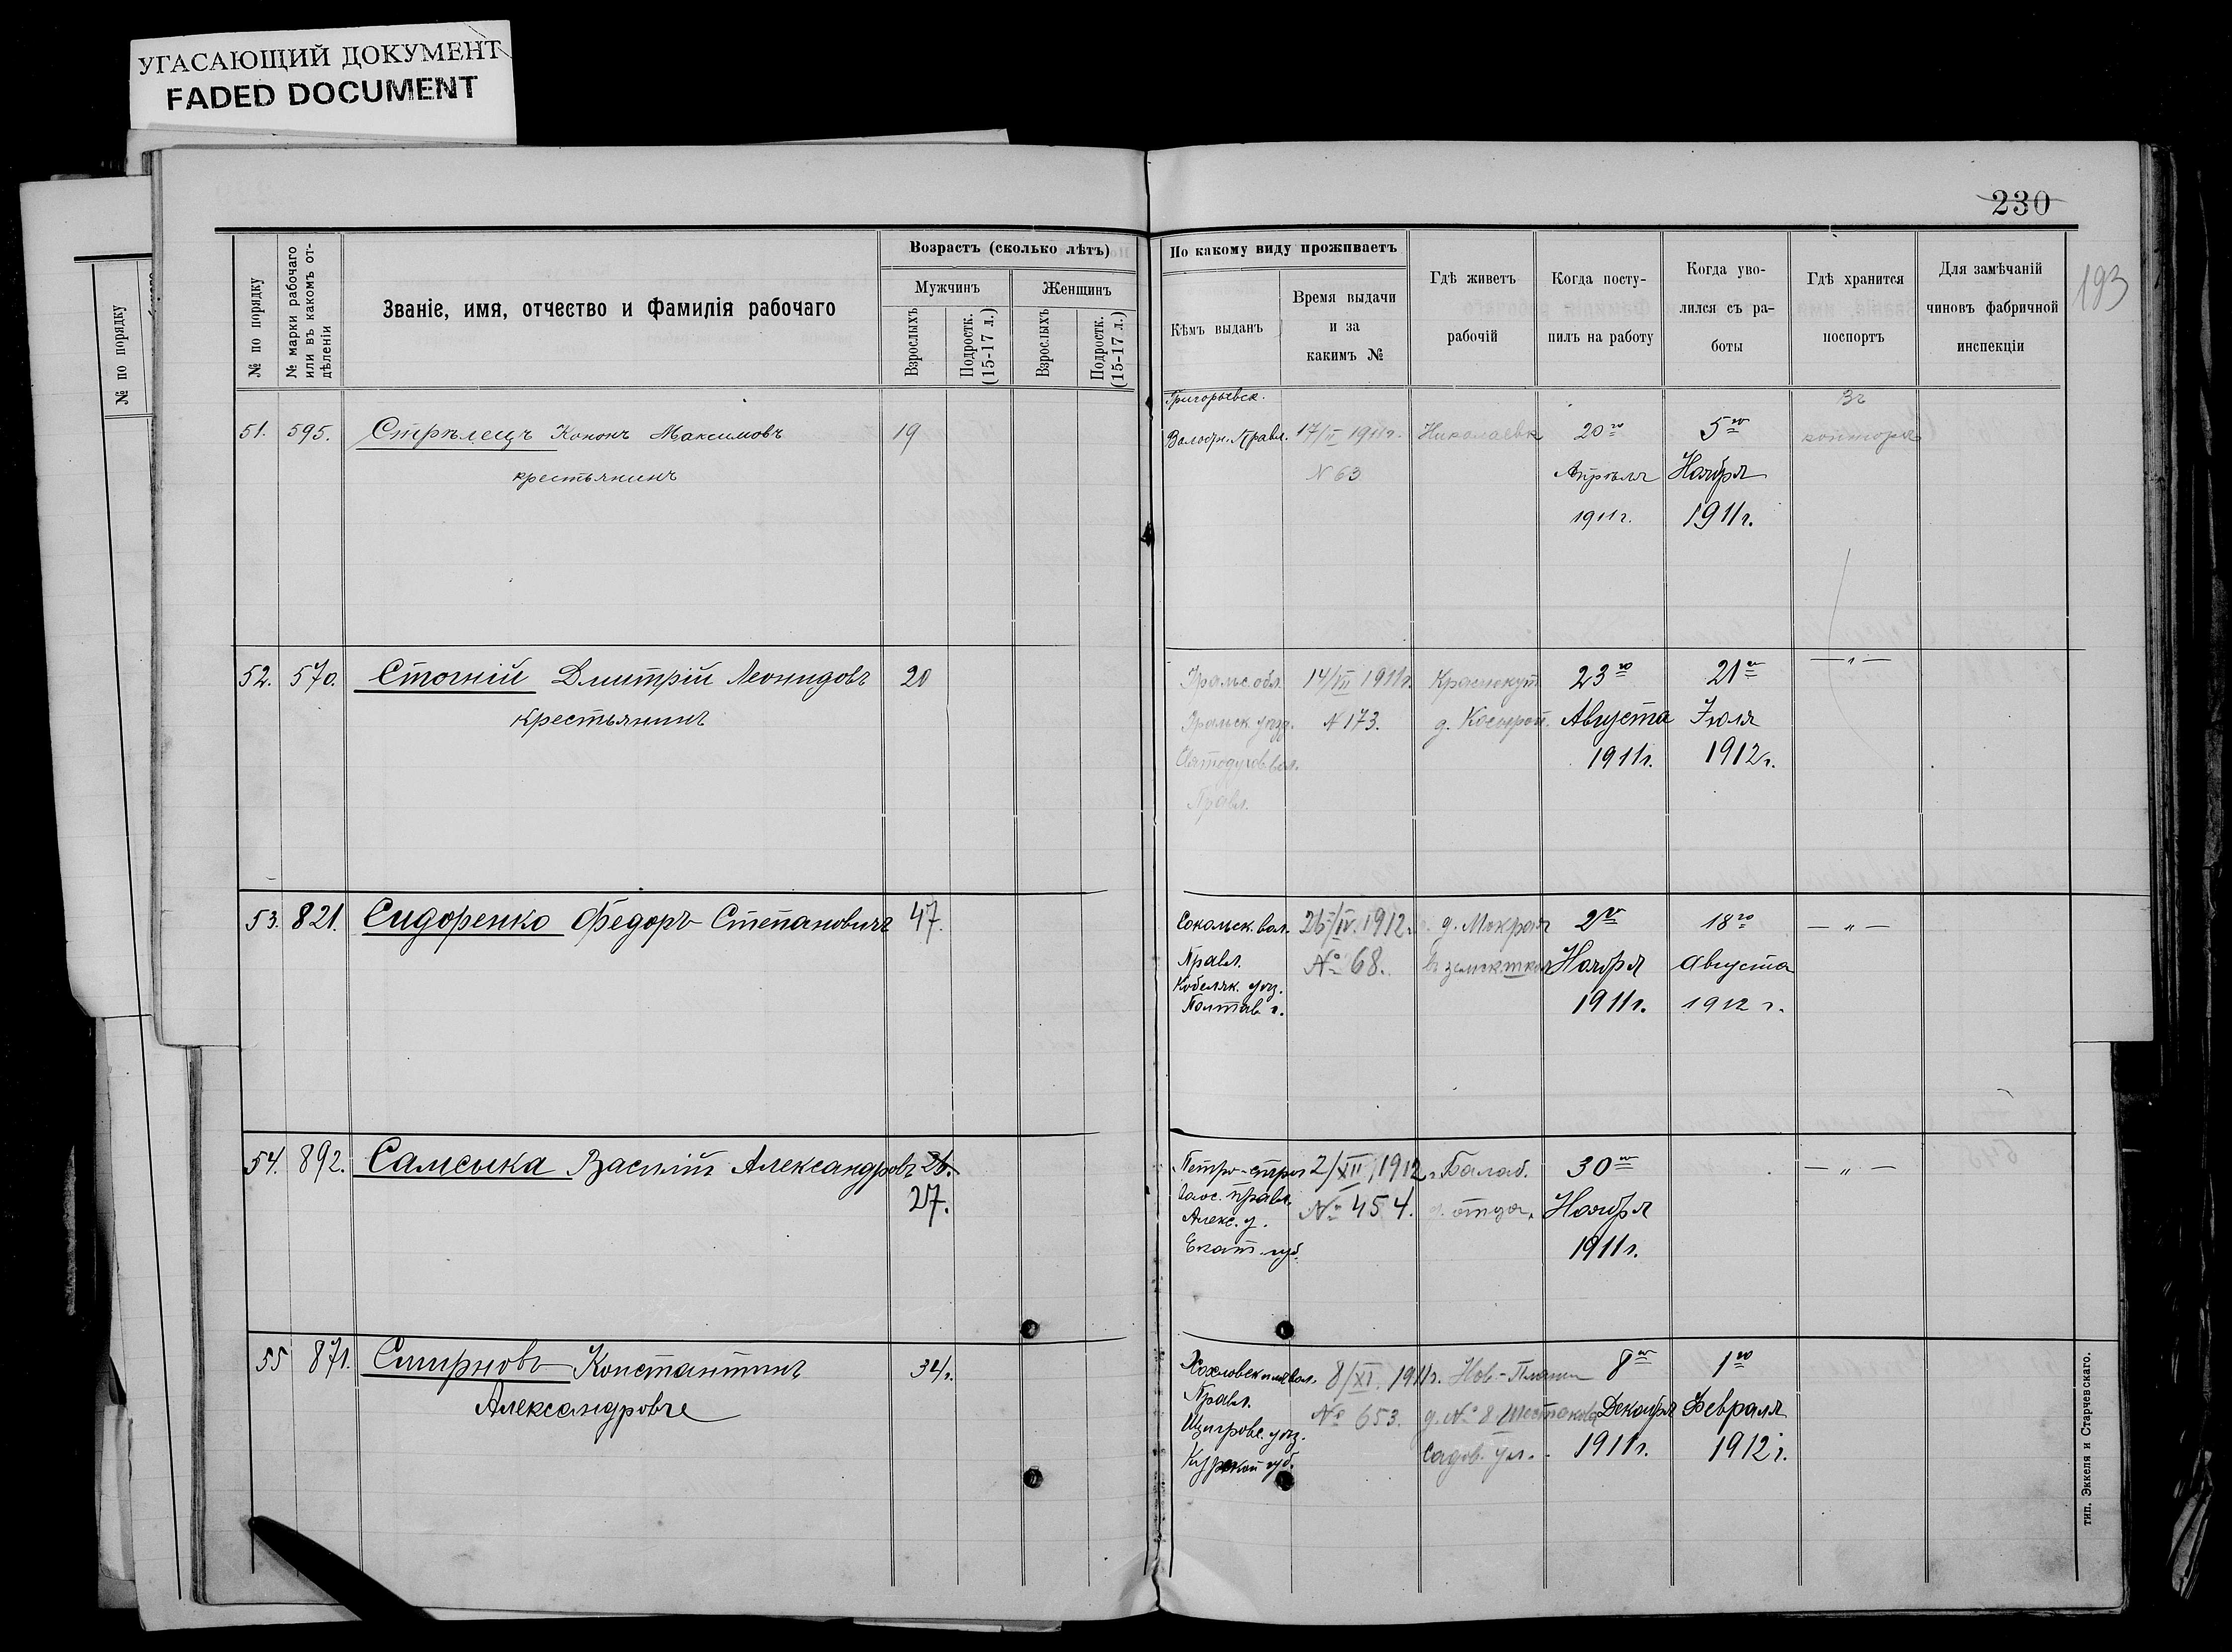 УГАСАЮЩИЙ ДОКУМЕНТ
FADED DOCUMENT
230
193
№ по порядку
№ по порядку
№ марки рабочаго
или въ какомъ от-
дѣленіи
Званіе, имя, отчество и Фамилія рабочаго
Возрастъ (сколько лѣтъ)
Мужчинъ
Женщинъ
Взрослыхъ
Подростк.
(15-17 л.)
Взрослыхъ
Подростк.
(15-17 л.)
По какому виду проживаетъ
Кѣмъ выданъ
Время выдачи
и за
какимъ №
Гдѣ живетъ
рабочій
Когда посту-
пилъ на работу
Когда уво-
лился съ ра-
боты
Гдѣ хранится
поспортъ
Для замѣчаній
чиновъ фабричной
инспекціи
51. 595. Стрѣлецъ Кононъ Максимовъ 19
крестьянинъ
Григорьевск.
Волостн. Правл.
17/II 1911г.
N 63
Николаевк
20го
Апрѣля
1911г.
5го
Ноября
1911г.
Въ
конторѣ
52. 570. Стогній Дмитрій Леонидовъ 20
крестьянинъ
Уральс. обл.
Уральск. уѣзд.
вол.
Правл.
14/VII 1911г.
N 173.
Краснокут
23го
Августа
1911г.
21го
Іюля
1912г.
— „ —
53. 821. Сидоренко Федоръ Степановичъ 47.
Сокольск. вол.
Правл.
Кобеляк. уѣз.
Полтав г.
26/IV. 1912.
№ 68.
д. Мокрая
2го
Ноября
1911г.
18го
Августа
1912 г.
— „ —
54. 892. Самсыка Василій Александровъ 26.
27.
Правл.
Алекс. у.
Екат. губ.
2/XII 1912
№ 454.
Балаб.
д. отца.
30го
Ноября
1911г.
— „ —
55 871. Смирновъ Константинъ 34.
Александровъ
Правл.
Щигровс. уѣз.
Курской губ.
8/XI. 1911г.
№ 653.
Нов.-Планы
д. № 8 Шестакова
Садов. ул.
8го
Декабря
1911г.
1го
Февраля
1912г.
тип. Эккеля и Старчевскаго.